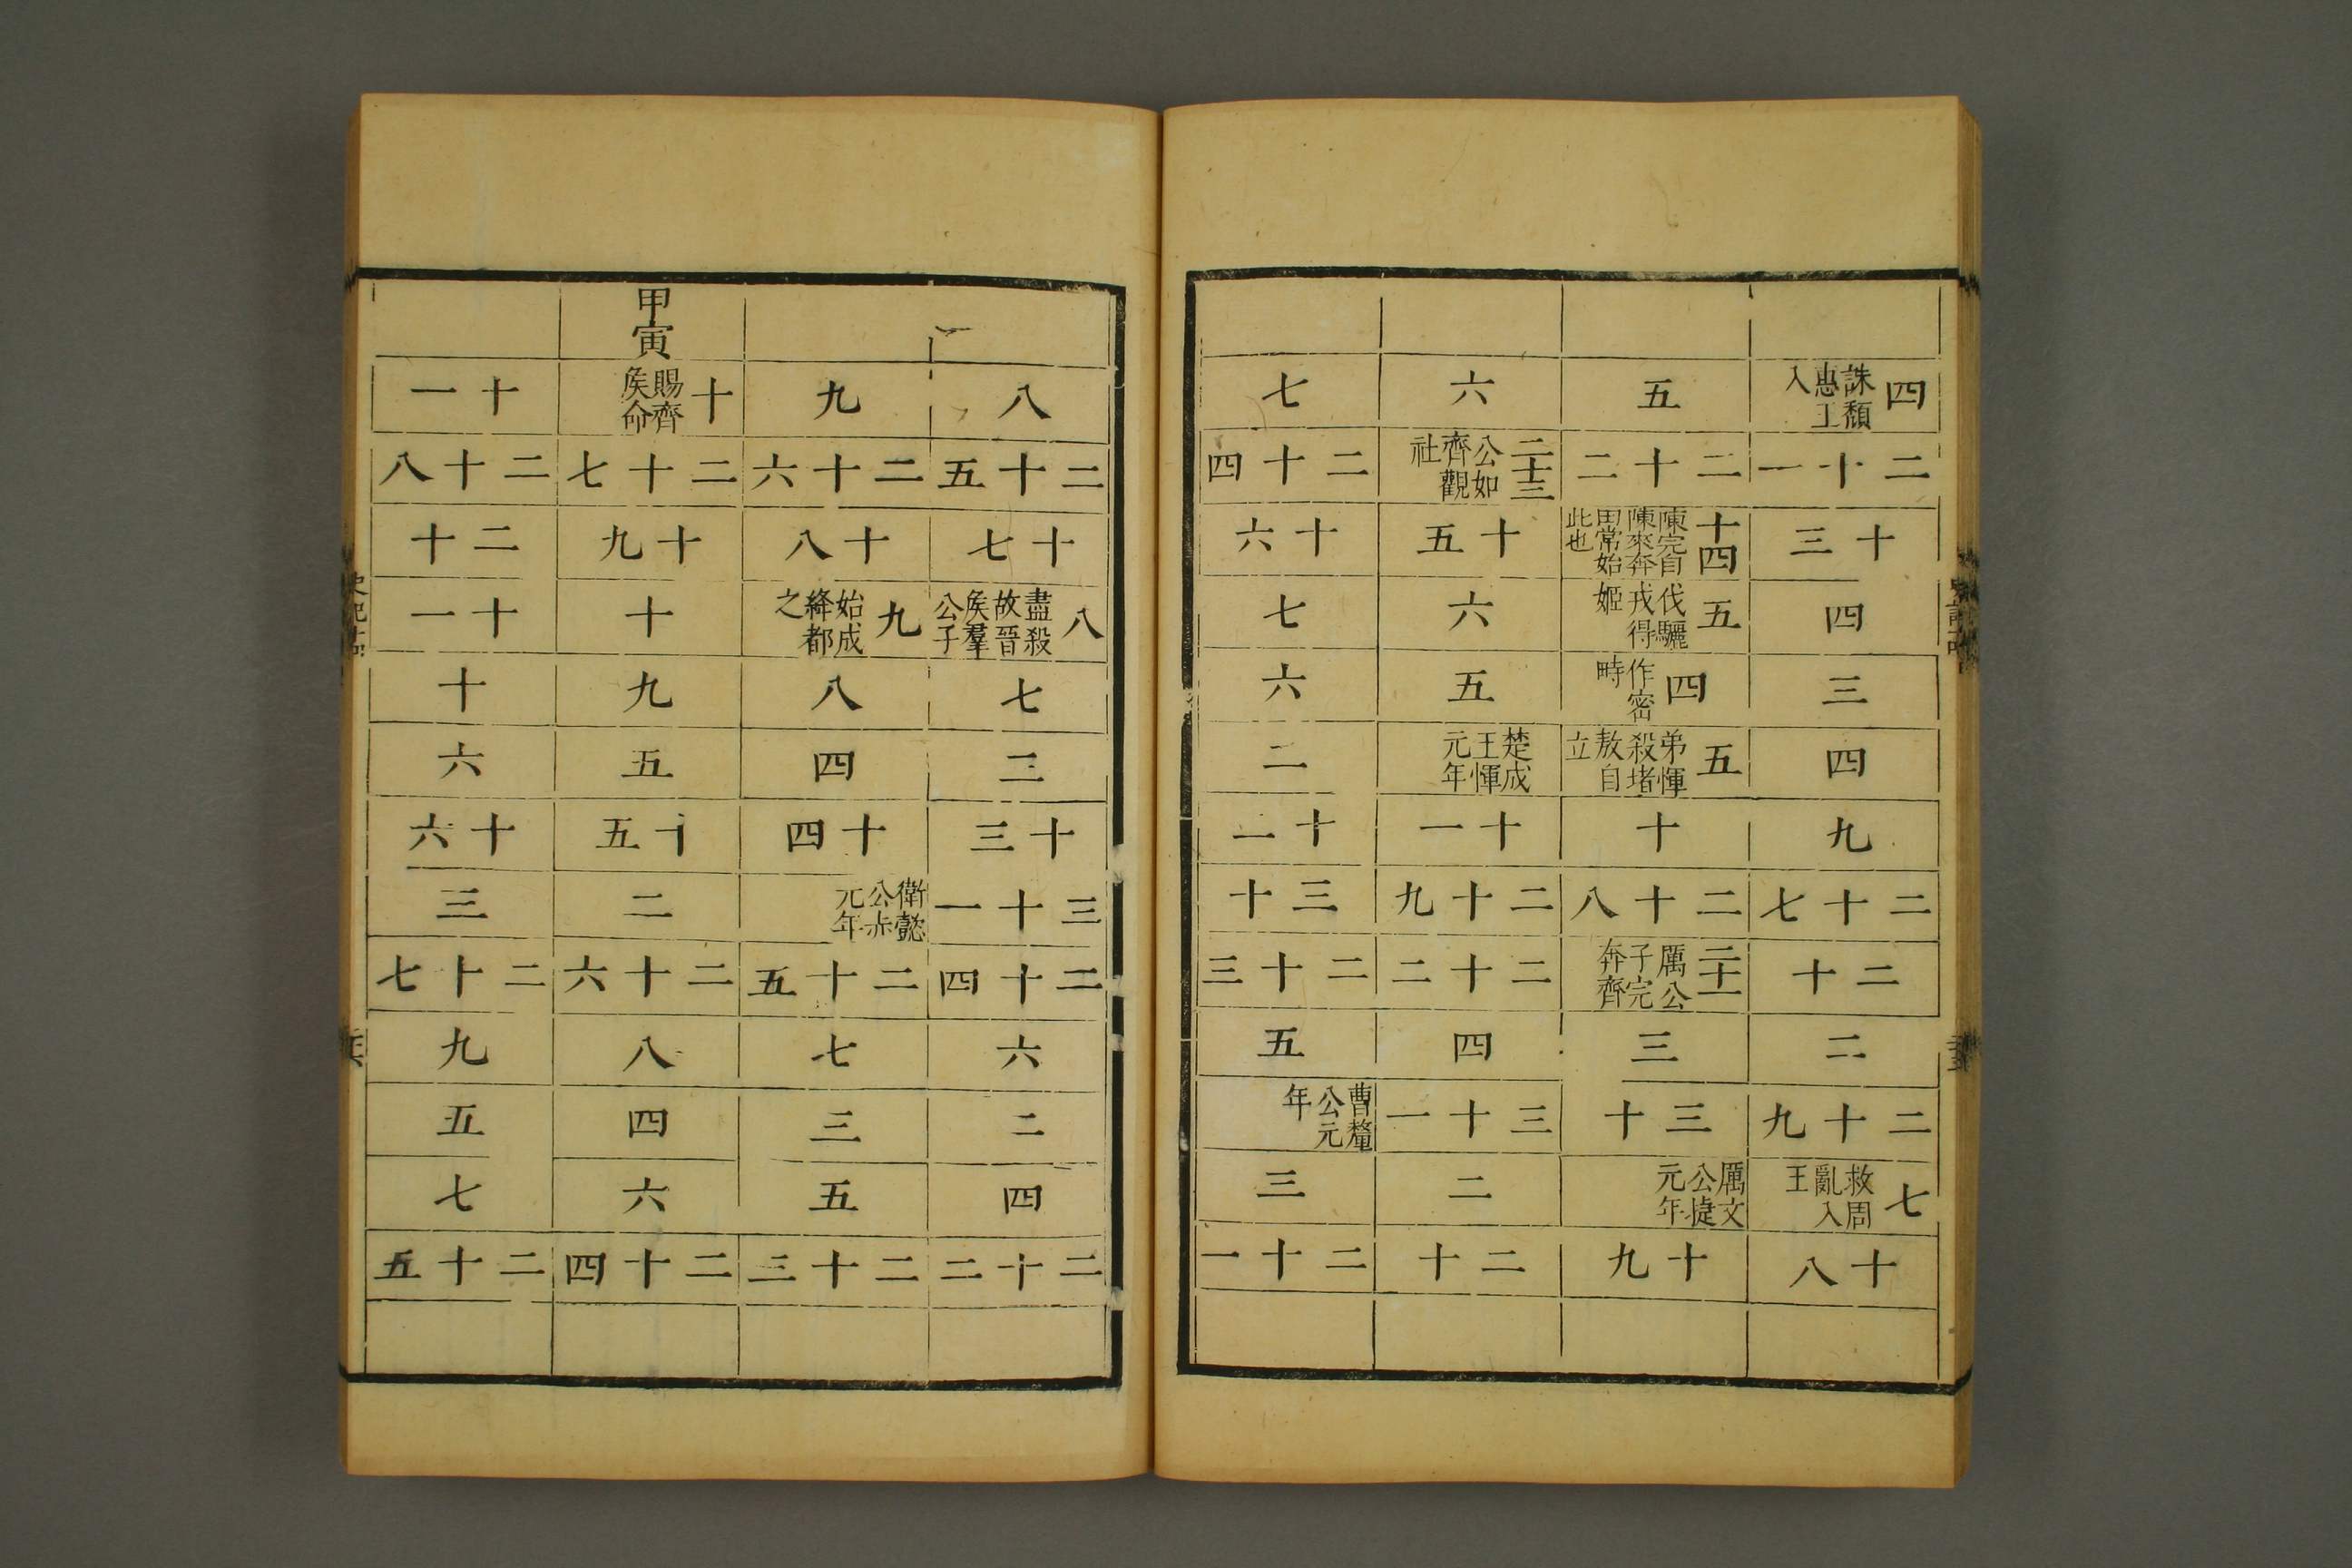 四 誅頹惠王入
二十一
十三
四
三
四
九
二十七
二十
二
二十九
七 救周亂入王
十八
五
二十二
十四 陳完自陳來奔田常始此也
五 伐驪戎得姬
四 作密畤
五 弟惲殺堵敖自立
十
二十八
二十一 厲公子完奔齊
三
三十
厲文公捷元年
十九
六
二十三 公如齊觀社
十五
六
五
楚成王惲元年
十一
二十九
二十二
四
三十一
二
二十
七
二十四
十六
七
六
二
十二
三十
二十三
五
曹釐公元年
三
二十一
八
二十五
十七
八 盡殺故晉侯羣公子
七
三
十三
三十一
二十四
六
二
四
二十二
九
二十六
十八
九 始成絳都之
八
四
十四
衛懿公赤元年
二十五
七
三
五
二十三
甲寅
十 賜齊侯命
二十七
十九
十
九
五
十五
二
二十六
八
四
六
二十四
十一
二十八
二十
十一
十
六
十六
三
二十七
九
五
七
二十五